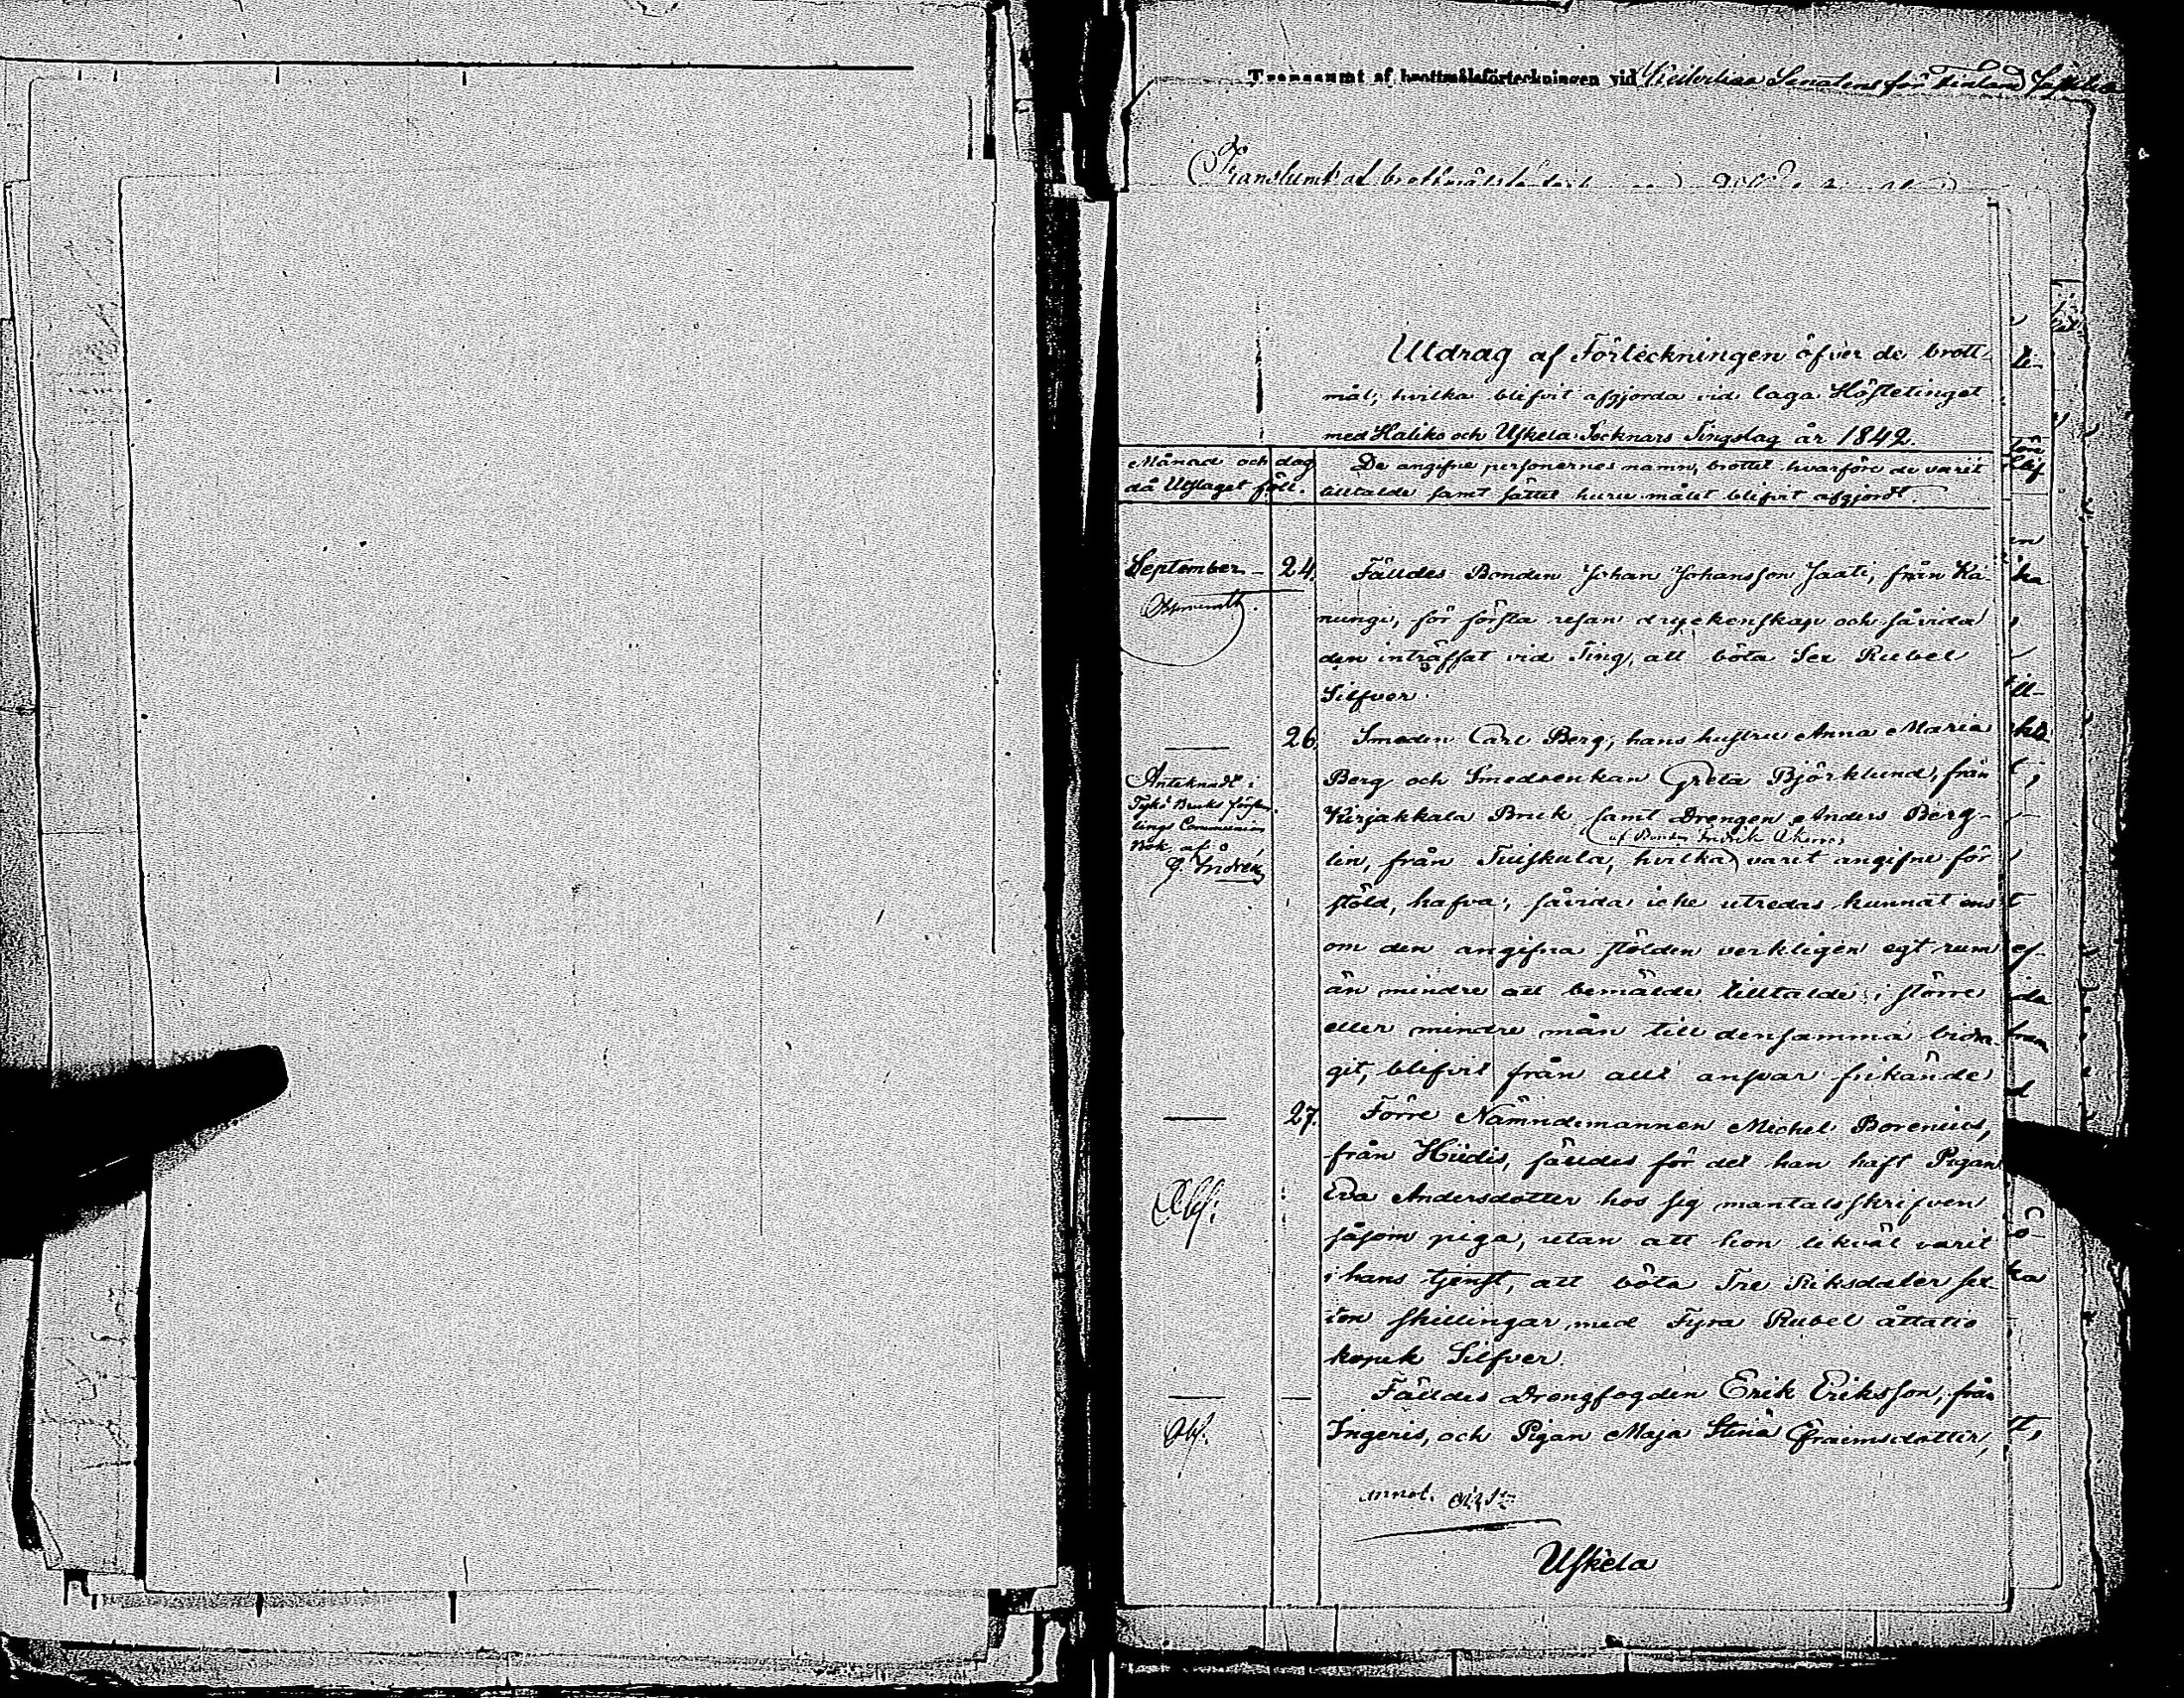 Transsumt af brottmålsförteckningen vid Kejserliga Senatens för Finland
Transsumt af
Utdrag af Förteckningen öfver de brott-
mål, hvilka blifvit afgjorda vid laga Höstetinget
med Haliko och Uskela Socknars Tingslag år 1842.
Månad och dag
då Utslaget föll.
De angifne personernes namn, brottet hvarföre de varit
tilltalde samt sättet huru målet blifvit afgjordt.
September - 24. Fälldes Bonden Johan Johansson Jaati, från Ka-
nungi, för första resan dryckenskap och såvida
den inträffat vid Ting, att böta Sex Rubel
Silfver.
— 26. Smeden Carl Berg, hans hustru Anna Maria
Berg och Smedsenkan Greta Björklund, från
Kirjakkala Bruk samt Drengen Anders Berg-
af Bonden Fredrik
lin, från Tuiskula, hvilka varit angifne för
stöld, hafva, såvida icke utredas kunnat ens
om den angifna stölden verkligen egt rum
än mindre att bemälde tilltalde i större
eller mindre mån till densamma bidra-
git, blifvit från allt ansvar frikände
Anteknadt i
Tykö Bruks försam-
lings Communion
Bok, af
G. Indrén
— 27. Förre Nämndemannen Michel Borenius,
från Hiidis, fälldes för det han haft Pigan
Eva Andersdotter hos sig mantalsskrifven
såsom piga, utan att hon likväl varit
i hans tjenst, att böta Tre Riksdaler sex-
ton skillingar, med Fyra Rubel åttatio
kopek Silfver.
— — Fälldes Drengfogden Erik Eriksson, från
Ingeris, och Pigan Maja Stina Efraimsdotter,
annot.
Uskela